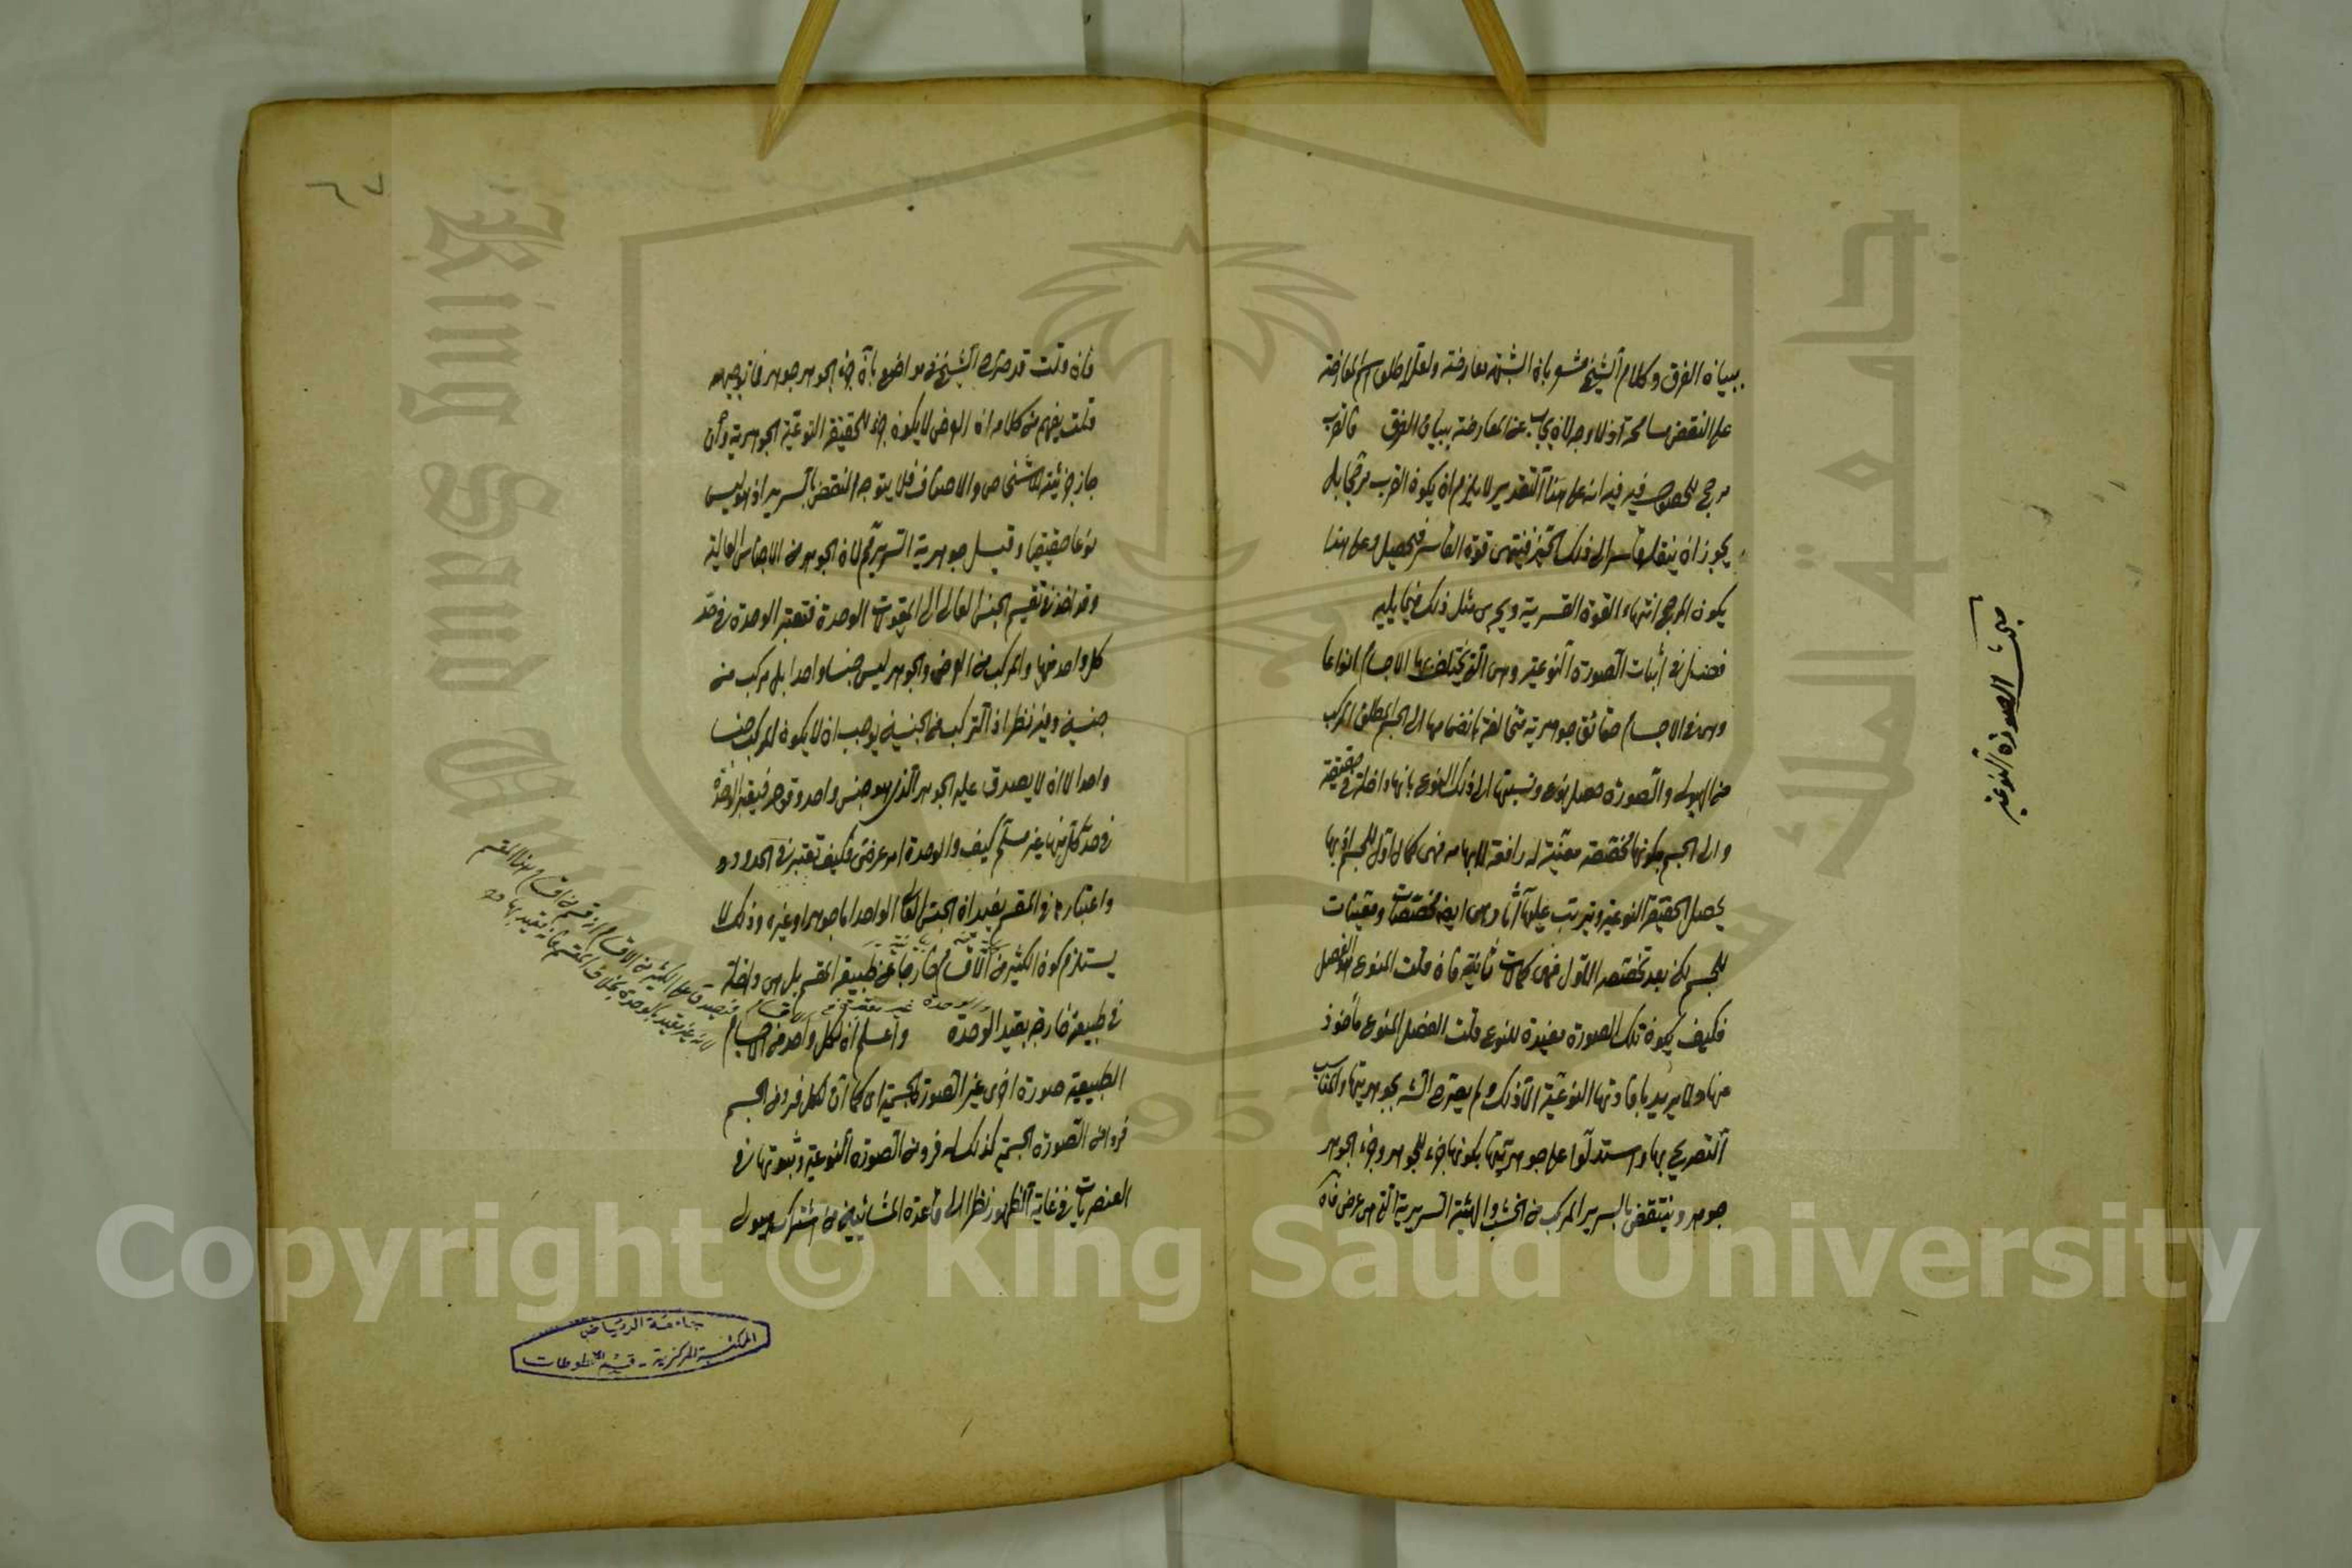 ببيان الفرق وكلام الشيخ مشعر بان الشبهة معارضة ولعله اطلق اسم المعارضة
على النقض مسامحة اذ لا وجه لان يجاب عن المعارضة ببيان الفرق فالقرب
مرجح للحصول فيه فيه انه على هذا التقدير لا يلزم ان يكون القرب مرجحا بل
يجوز ان ينقل قاسر الى ذلك الحيز فينتهى قوة القاسر فيحصل وعلى هذا
يكون المرجح انتهاء القوة القسرية ويجرى مثل ذلك فيما يليه
فصل فى اثبات الصورة النوعية وهى التى تختلف بها الاجسام انواعا
وهى فى الاجسام حقائق جوهرية متخالفة بانضمامها الى الجسم المطلق المركب
من الهيولى والصورة حصل نوع ونسبتها الى ذلك النوع بانها داخلة فى حقيقته
والى الجسم بكونها مخصصة معينة له رافعة لابهامه فهى كمال اول للجسم اذ بها
يحصل الحقيقة النوعية ويترتب عليها آثار وهى ايضا مخصصات ومعينات
للجسم لكن بعد تخصصه الاول فهى كمالات ثانية فان قلت المنوع هو الفصل
فكيف يكون تلك الصورة مفيدة للنوع قلت الفصل المنوع مأخوذ
منها ولا يريد بافادتها النوعية الا ذلك ولم يصرح الشه بجوهريتها والمناسب
التصريح بها واستدلوا على جوهريتها بكونها جزء للجوهر وجزء الجوهر
جوهر وينتقض بالسرير المركب من الخشب والهيئة السريرية التى هى عرض فان
مبحث الصورة النوعية
٦٧
فان قلت قد صرح الشيخ فى مواضع بان جزء الجوهر جوهر فما توجيهه
قلت يفهم من كلامه ان العرض لا يكون جزء للحقيقة النوعية الجوهرية وان
جاز جزئيته للاشخاص والاصناف فلا يتوجه النقض بالسرير اذ هو ليس
نوعا حقيقيا وقيل جوهرية السرير لان الجوهر من الاجناس العالية
وقد اخذ فى تقسيم الجنس العالى الى المقولات الوحدة فتعتبر الوحدة فى حد
كل واحد منها والمركب من العرض والجوهر ليس جنسا واحدا بل مركب من
جنسين وفيه نظر اذ التركيب من الجنسين يوجب ان لا يكون المركب جنسا
واحدا لا ان لا يصدق عليه الجوهر الذى هو جنس واحد وقوله فيعتبر الوحدة
فى حد كل منها غير مسلم كيف والوحدة امر عرضى فكيف تعتبر فى الحدود
واعتباره فى المقسم يفيد ان الجنس العالى الواحد اما جوهر او غيره وذلك لا
يستلزم كون الكثير من الاقسام خارجا عن طبيعة المقسم بل هى داخلة
فى طبيعة خارجة بقيد الوحدة واعلم ان لكل واحد من الاجسام
الطبيعية صورة اخرى غير الصورة الجسمية اى كما ان لكل فرد من الجسم
فردا من الصورة الجسمية كذلك له فرد من الصورة النوعية وثبوتها فى
العنصريات فى غاية الظهور نظرا الى قاعدة المشائيين من اشتراك هيولى
والوحدة غير معتبرة فى الاقسام
جامعة الرياض
المكتبة المركزية - قسم المخطوطات
King Saud Univer
جامعة الملك س
1957
Copyright © King Saud University